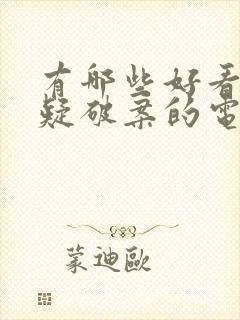 有哪些好看
疑破案的電
蒙迪歐